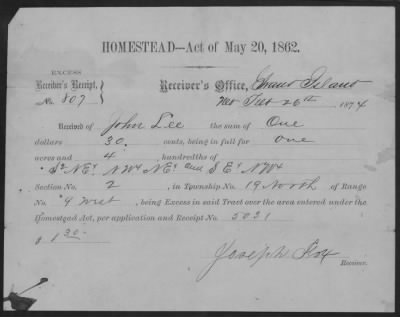 HOMESTEAD—Act of May 20, 1862.
EXCESS
Receiver's Receipt, No. 807
Receiver's Office, Grand Island
26th 1874
Received of John Lee the sum of One
dollars 30 cents, being in full for one
acres and 4 hundredths of
S½ NE¼ NW¼ NE¼ and SE¼ NW¼
Section No. 2, in Township No. 19 North of Range
No. 9 West, being Excess in said Tract over the area entered under the
Homestead Act, per application and Receipt No. 5021
$ 1 30
Joseph Fox
Receiver.